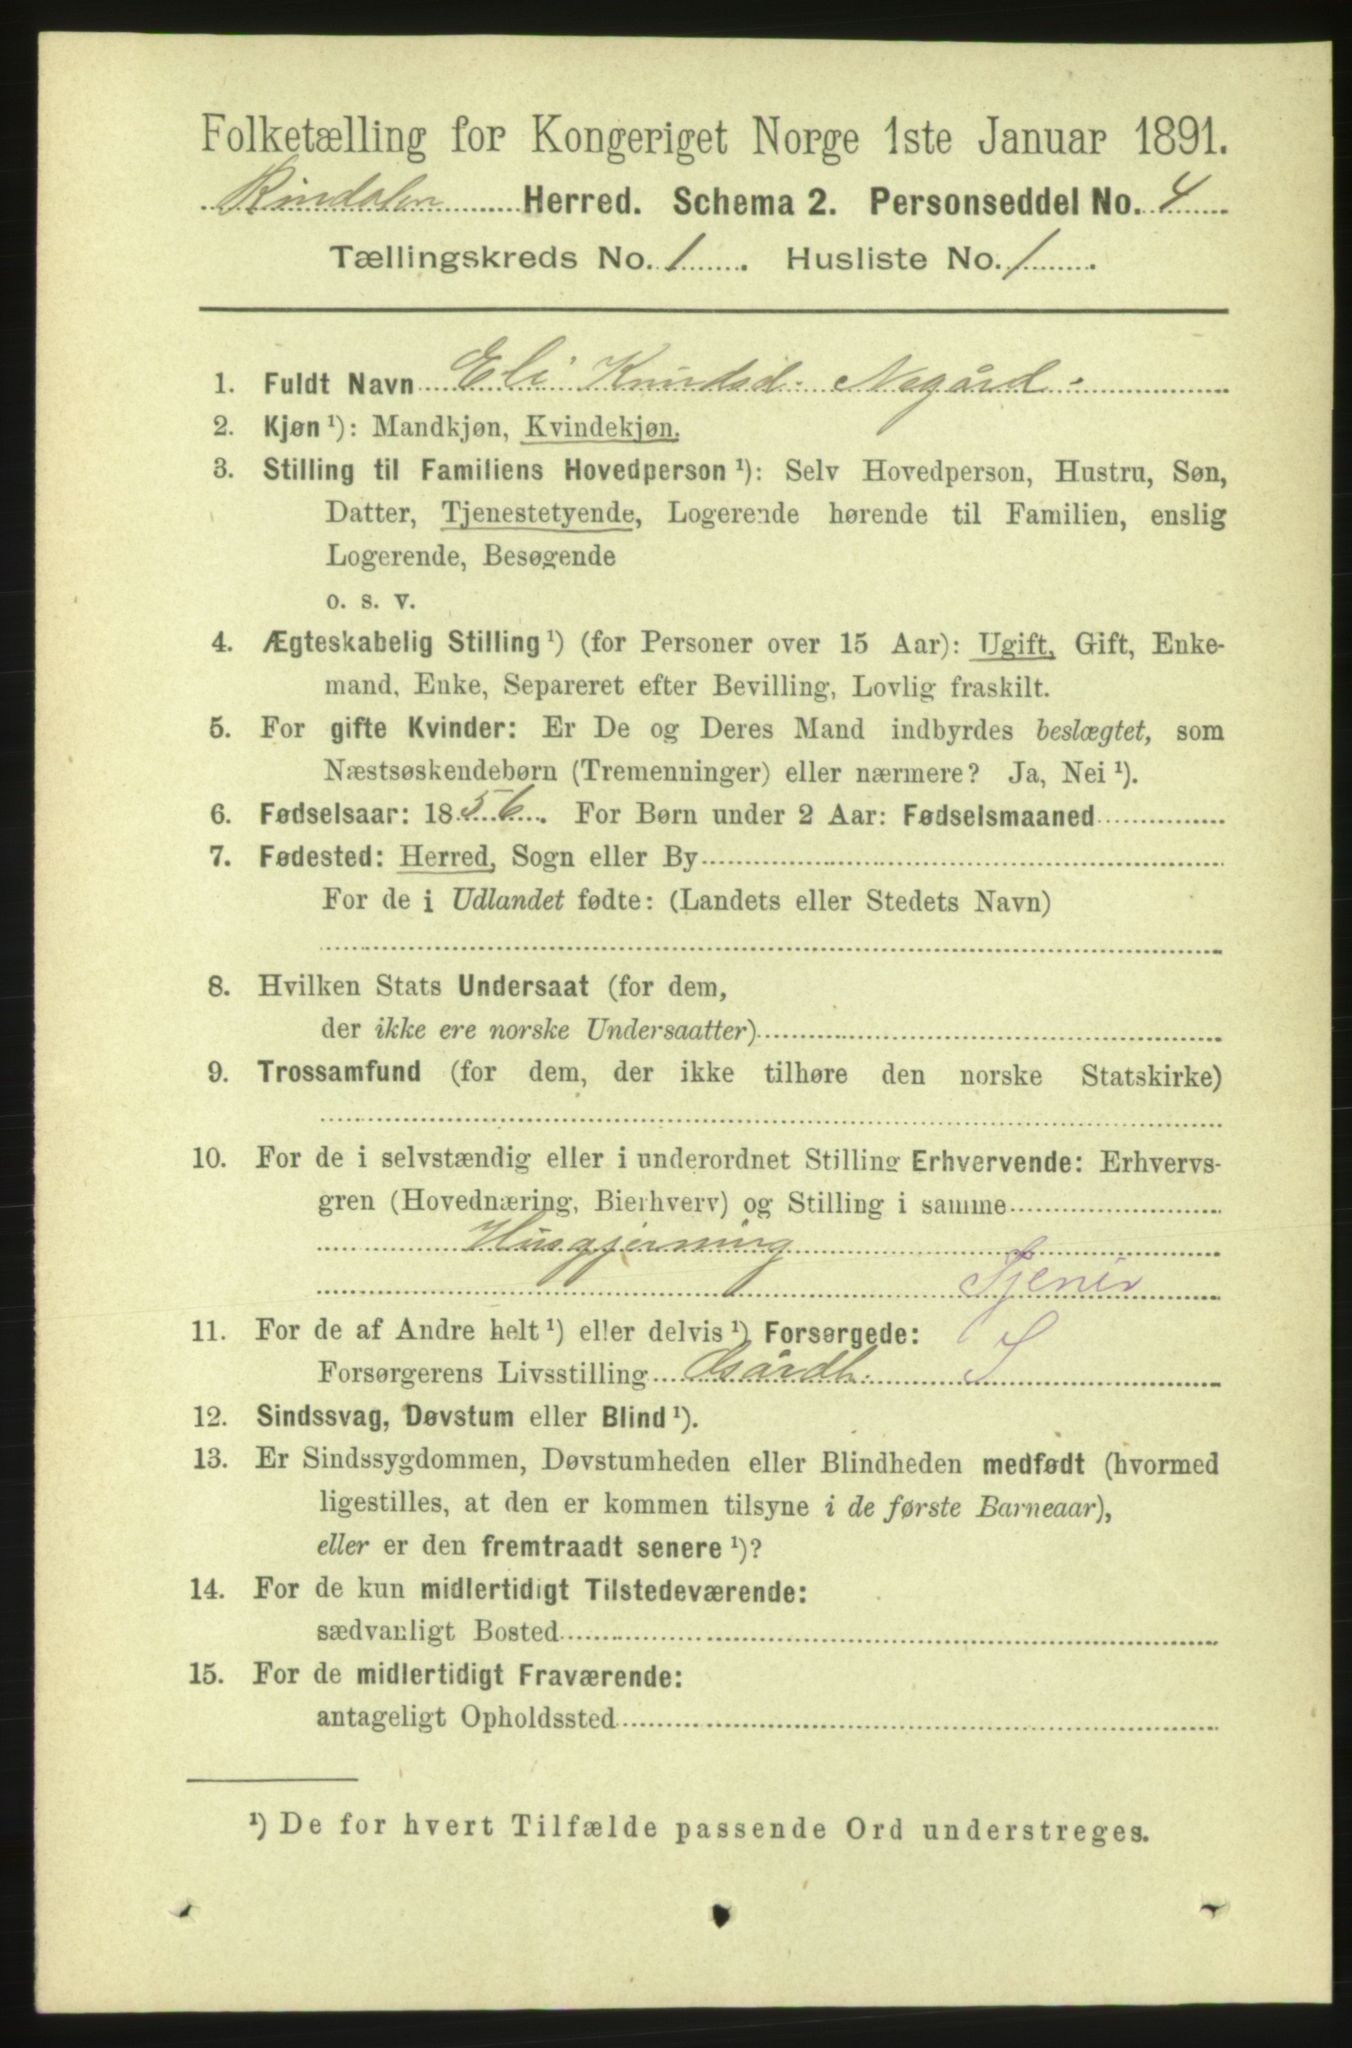 Folketælling for Kongeriget Norge 1ste Januar 1891.
Rindalen Herred. Schema 2. Personseddel No. 4
Tællingskreds No. 1. Husliste No. 1.
1. Fuldt Navn Eli Knudsd. Negård.
2. Kjøn ¹): Mandkjøn, Kvindekjøn.
3. Stilling til Familiens Hovedperson ¹): Selv Hovedperson, Hustru, Søn,
Datter, Tjenestetyende, Logerende hørende til Familien, enslig
Logerende, Besøgende
o. s. v.
4. Ægteskabelig Stilling ¹) (for Personer over 15 Aar): Ugift, Gift, Enke-
mand, Enke, Separeret efter Bevilling, Lovlig fraskilt.
5. For gifte Kvinder: Er De og Deres Mand indbyrdes beslægtet, som
Næstsøskendebørn (Tremenninger) eller nærmere? Ja, Nei ¹).
6. Fødselsaar: 1856. For Børn under 2 Aar: Fødselsmaaned
7. Fødested: Herred, Sogn eller By
For de i Udlandet fødte: (Landets eller Stedets Navn)
8. Hvilken Stats Undersaat (for dem,
der ikke ere norske Undersaatter)
9. Trossamfund (for dem, der ikke tilhøre den norske Statskirke)
10. For de i selvstændig eller i underordnet Stilling Erhvervende: Erhvervs-
gren (Hovednæring, Bierhverv) og Stilling i samme
Husgjerning
Tjener
11. For de af Andre helt ¹) eller delvis ¹) Forsørgede:
Forsørgerens Livsstilling Gårdb. S
12. Sindssvag, Døvstum eller Blind ¹).
13. Er Sindssygdommen, Døvstumheden eller Blindheden medfødt (hvormed
ligestilles, at den er kommen tilsyne i de første Barneaar),
eller er den fremtraadt senere ¹)?
14. For de kun midlertidigt Tilstedeværende:
sædvanligt Bosted
15. For de midlertidigt Fraværende:
antageligt Opholdssted
¹) De for hvert Tilfælde passende Ord understreges.